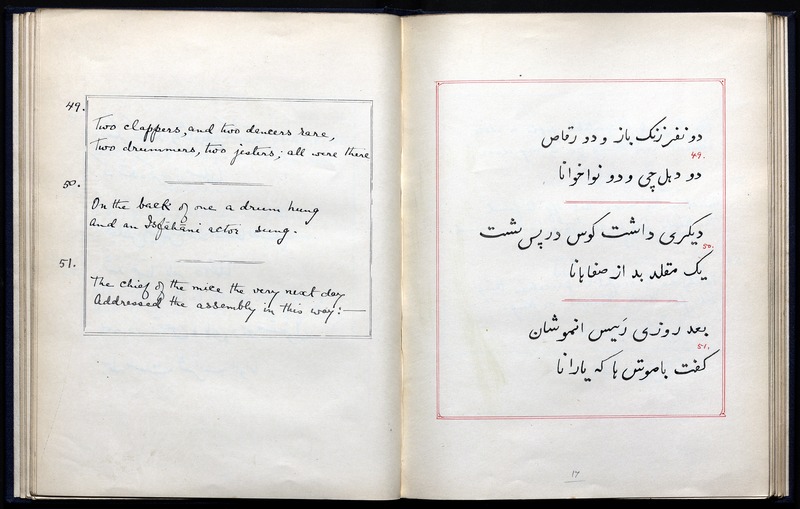 49.
Two clappers, and two dancers rare,
Two drummers, two jesters; all were there
50.
On the back of one a drum hung
and an Isfahāni actor sung.
51.
The chief of the mice the very next day
Addressed the assembly in this way:—
دو نفر زنک باز و دو رقاص
49.
دو دهل چی و دو نواخوانا
دیکری داشت کوس در پس پشت
50.
یک مقلد بد از صفاهانا
بعد روزی رئیس انموشان
51.
کفت باموش ها که یارانا
17